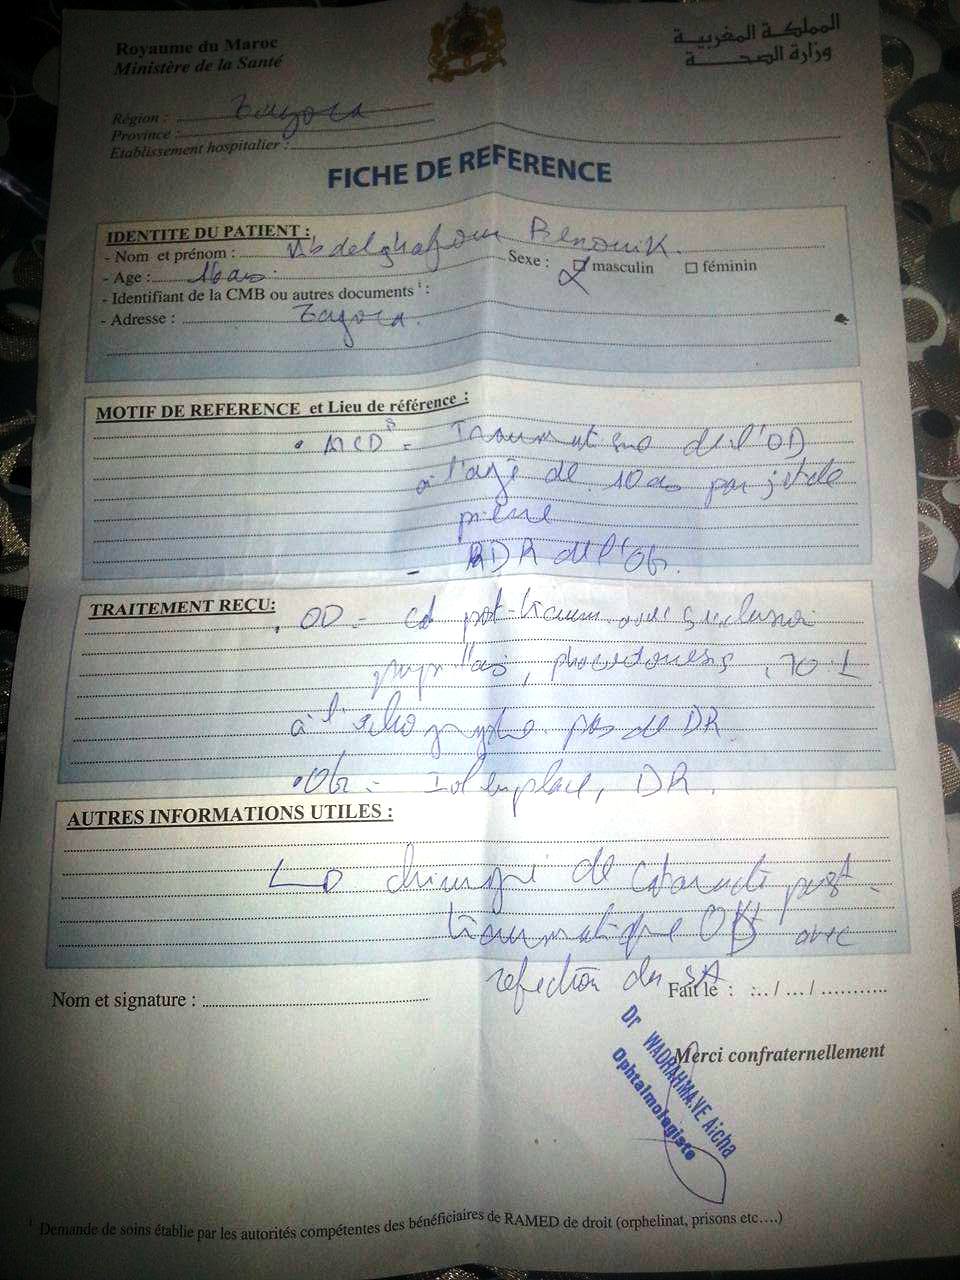 Royaume du Maroc
Ministère de la Santé
المملكة المغربية
وزارة الصحة
Région : Zagora
Province :
Etablissement hospitalier :
FICHE DE REFERENCE
IDENTITE DU PATIENT :
- Nom et prénom : Abdelghafour
Sexe : masculin féminin
- Age : 16 ans
- Identifiant de la CMB ou autres documents 1 :
- Adresse : Zagora.
MOTIF DE REFERENCE et Lieu de référence :
• ATCDs = Traumatisme de l'OD
à l'age de 10 ans par jet de
pierre
- RDR de l'OG.
TRAITEMENT REÇU:
• OD = post-traum avec
à l'echographie pas de DR
• OG = en place, DR.
AUTRES INFORMATIONS UTILES :
chirurgie de cataracte post-
traumatique OD avec
refection du SA
Nom et signature :
Fait le : .../.../...........
Merci confraternellement
Dr WADRAHMANE Aicha
Ophtalmologiste
1 Demande de soins établie par les autorités compétentes des bénéficiaires de RAMED de droit (orphelinat, prisons etc....)